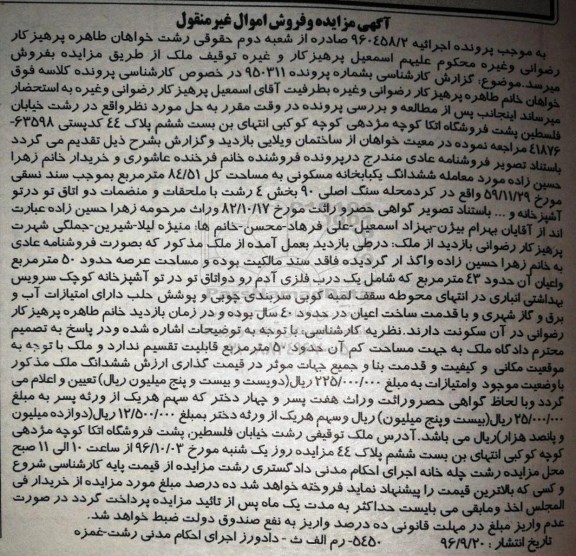 آگهی مزایده و فروش اموال غیر منقول
به موجب پرونده اجرائیه ۹۶۰۴۵۸/۲ صادره از شعبه دوم حقوقی رشت خواهان طاهره پرهیزکار
رضوانی وغیره محکوم علیهم اسمعیل پرهیزکار و غیره توقیف ملک از طریق مزایده بفروش
میرسد.موضوع: گزارش کارشناسی بشماره پرونده ۹۵۰۳۱۱ در خصوص کارشناسی پرونده کلاسه فوق
خواهان خانم طاهره پرهیزکار رضوانی وغیره بطرفیت آقای اسمعیل پرهیزکار رضوانی وغیره به استحضار
میرساند اینجانب پس از مطالعه و بررسی پرونده در وقت مقرر به حل مورد نظر واقع در رشت خیابان
فلسطین پشت فروشگاه اتکا کوچه مژدهی کوچه کوکبی انتهای بن بست ششم پلاک ٤٤ کدپستی ۶۳۵۹۸-
۴۱۸۷۶ مراجعه نموده در معیت خواهان از ساختمان ویلایی بازدید وگزارش بشرح ذیل تقدیم می گردد
باستناد تصویر فروشنامه عادی مندرج درپرونده فروشنده خانم فرخنده عاشوری و خریدار خانم زهرا
حسین زاده مورد معامله ششدانگ یکبابخانه مسکونی به مساحت کل ۸۴/۵۱ مترمربع بموجب سند نسقی
مورخ ۵۹/۱۱/۲۹ واقع در کردمحله سنگ اصلی ۹۰ بخش ٤ رشت با ملحقات و منضمات دو اتاق تو درتو
آشپزخانه و ... باستناد تصویر گواهی حصرو راثت مورخ ۸۲/۱۰/۱۷ وراث مرحومه زهرا حسین زاده عبارت
اند از آقایان بهرام بیژن-بهزاد اسمعیل-علی فرهاد-محسن-خانم ها: منیژه لیلا-شیرین-جملگی شهرت
پرهیزکار رضوانی بازدید از ملک: درطی بازدید بعمل آمده از ملک مذکور که بصورت فروشنامه عادی
به خانم زهرا حسین زاده واگذار گردیده فاقد سند مالکیت بوده و مساحت عرصه حدود ۵۰ مترمربع
واعیان آن حدود ۴۳ مترمربع که شامل یک درب فلزی آدم رو دواتاق تو در تو آشپزخانه کوچک سرویس
بهداشتی انباری در انتهای محوطه سقف لمبه کوبی سربندی چوبی و پوشش حلب دارای امتیازات آب و
برق و گاز شهری و با قدمت ساخت اعیان در حدود ۴۰ سال بوده و در زمان بازدید خانم طاهره پرهیزکار
رضوانی در آن سکونت دارند.نظریه کارشناسی: با توجه به توضیحات اشاره شده ودر پاسخ به تصمیم
محترم دادگاه ملک به جهت مساحت کم آن حدود ۵۰ مترمربع قابلیت تقسیم ندارد و ملک با توجه به
موقعیت مکانی و کیفیت و قدمت بنا و جمیع جهات موثر در قیمت گذاری ارزش ششدانگ ملک مذکور
باوضعیت موجود وامتیازات به مبلغ ۲۲۵/۰۰۰/۰۰۰ ریال(دویست و بیست و پنج میلیون ریال) تعیین و اعلام می
گردد وبا لحاظ گواهی حصروراثت وراث هفت پسر و چهار دختر که سهم هریک از ورثه پسر به مبلغ
۲۵/۰۰۰/۰۰۰ ریال(بیست وپنج میلیون) ریال وسهم هریک از ورثه دختر بمبلغ ۱۲/۵۰۰/۰۰۰ ریال(دوازده میلیون
و پانصد هزار)ریال می باشد.آدرس ملک توقیفی رشت خیابان فلسطین پشت فروشگاه اتکا کوچه مژدهی
کوچه کوکبی انتهای بن بست ششم پلاک ٤٤ مزایده روز یک شنبه مورخ ۹۶/۱۰/۰۳ از ساعت ۱۰ الی ۱۱ صبح
محل مزایده رشت چله خانه اجرای احکام مدنی دادگستری رشت مزایده از قیمت پایه کارشناسی شروع
و کسی که بالاترین قیمت را پیشنهاد نماید فروخته خواهد شد ده درصد مبلغ مورد مزایده از خریدار فی
المجلس اخذ ومابقی می بایست حداکثر به مدت یک ماه پس از تائید مزایده پرداخت گردد در صورت
عدم واریز مبلغ در مهلت قانونی ده درصد واریز به نفع صندوق دولت ضبط خواهد شد.
تاریخ انتشار : ۹۶/۹/۲۰ ۵٤۵۰- رم الف ث - دادورز اجرای احکام مدنی رشت-غمزه